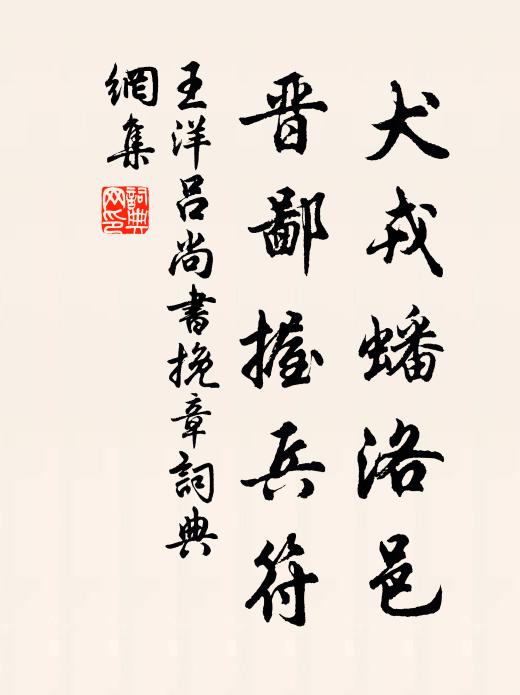 犬戎蟠洛邑
晋鄙握兵符
王洋吕尚書挽章詞典
網集
詞典網印